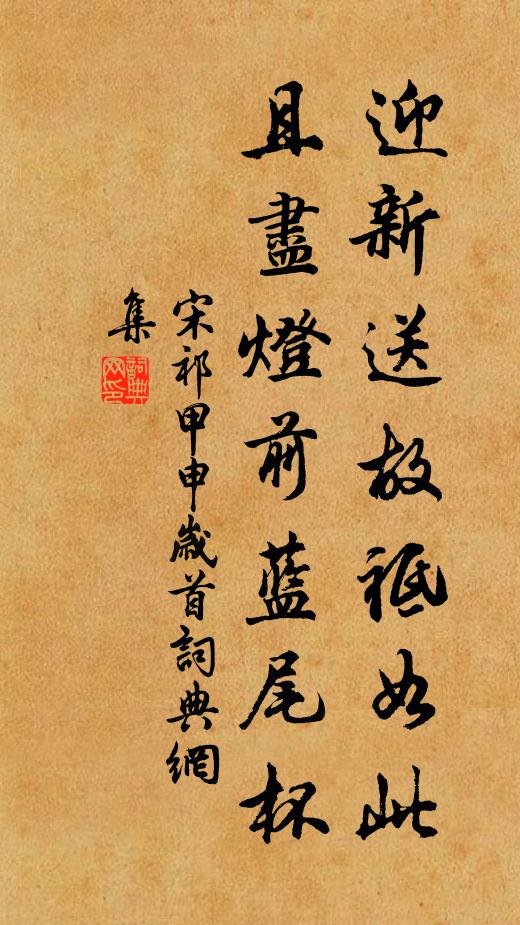 迎新送故祗如此
且盡燈前藍尾杯
宋祁甲申歲首詞典網
集
詞典
网印